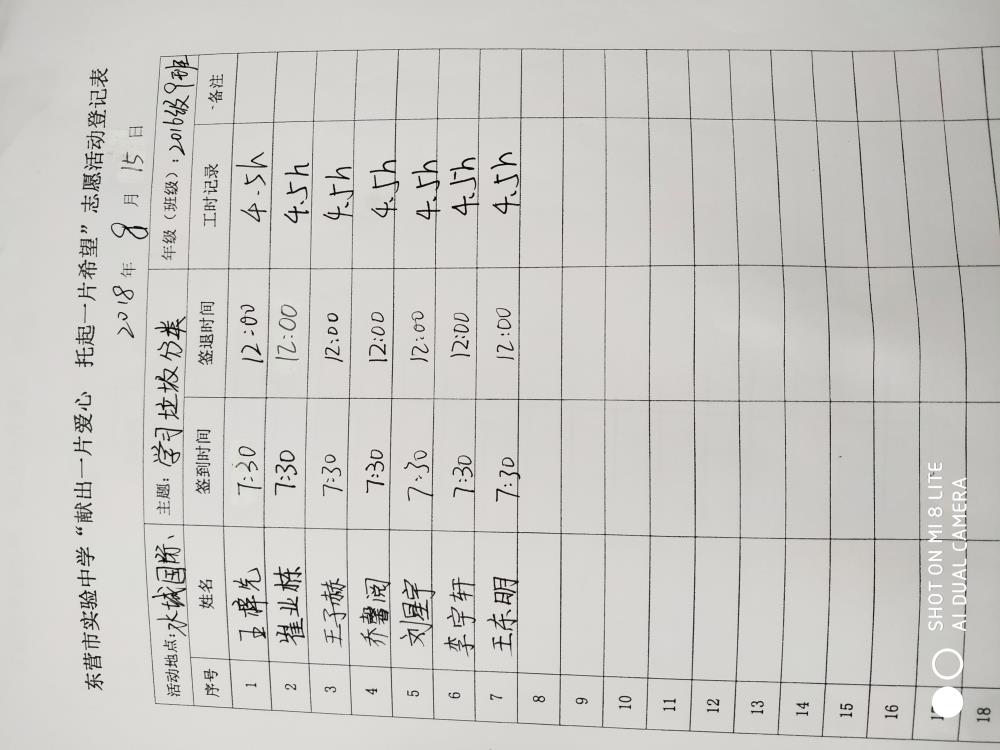 东营市实验中学“献出一片爱心 托起一片希望”志愿活动登记表
2018年 8月 15日
活动地点:水城国际、 主题:学习垃圾分类 年级(班级):2016级9班
序号 姓名 签到时间 签退时间 工时记录 备注
1 王 7:30 12:00 4.5h
2 崔业栋 7:30 12:00 4.5h
3 王子赫 7:30 12:00 4.5h
4 乔馨阅 7:30 12:00 4.5h
5 刘星宇 7:30 12:00 4.5h
6 李宇轩 7:30 12:00 4.5h
7 王东明 7:30 12:00 4.5h
8
9
10
11
12
13
14
15
16
18
SHOT ON MI 8 LITE
AI DUAL CAMERA